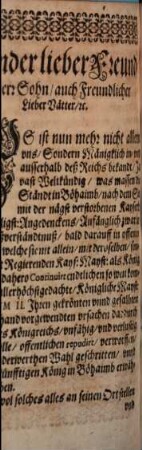 nder lieber Freund
err Sohn / auch Freundlicher
Lieber Vätter / ꝛc.
S ist nun mehr nicht allein
vns / Sondern Mänigklich in
ausserhalb deß Reichs bekant
vast Weltkündig / was massen
Ständt in Böhaimb / nach dem
mit der nägst verstorbenen Kayser
ligst: Angedenckens / Anfänglich zwar
verständtnuß / bald darauff in offent
welche sie mit allein / mit derselben / son
Regierenden Kays: Mayst: als König
dahero Continuirt endtlichen so weit kom
llerhöchstgedachte / Königliche Mayst:
M II. Ihren gekrönten vnd gesalbten
hand vorgewendten vrsachen dardurch
s Königreichs / vnfähig / vnd verlustig
lle / offentlichen expodirt / verworffen /
derwerthen Wahl geschritten / vnd
künfftigen König in Böhaimb erwöh
ben.
wol solches alles an seinen Ort stellen
vnd